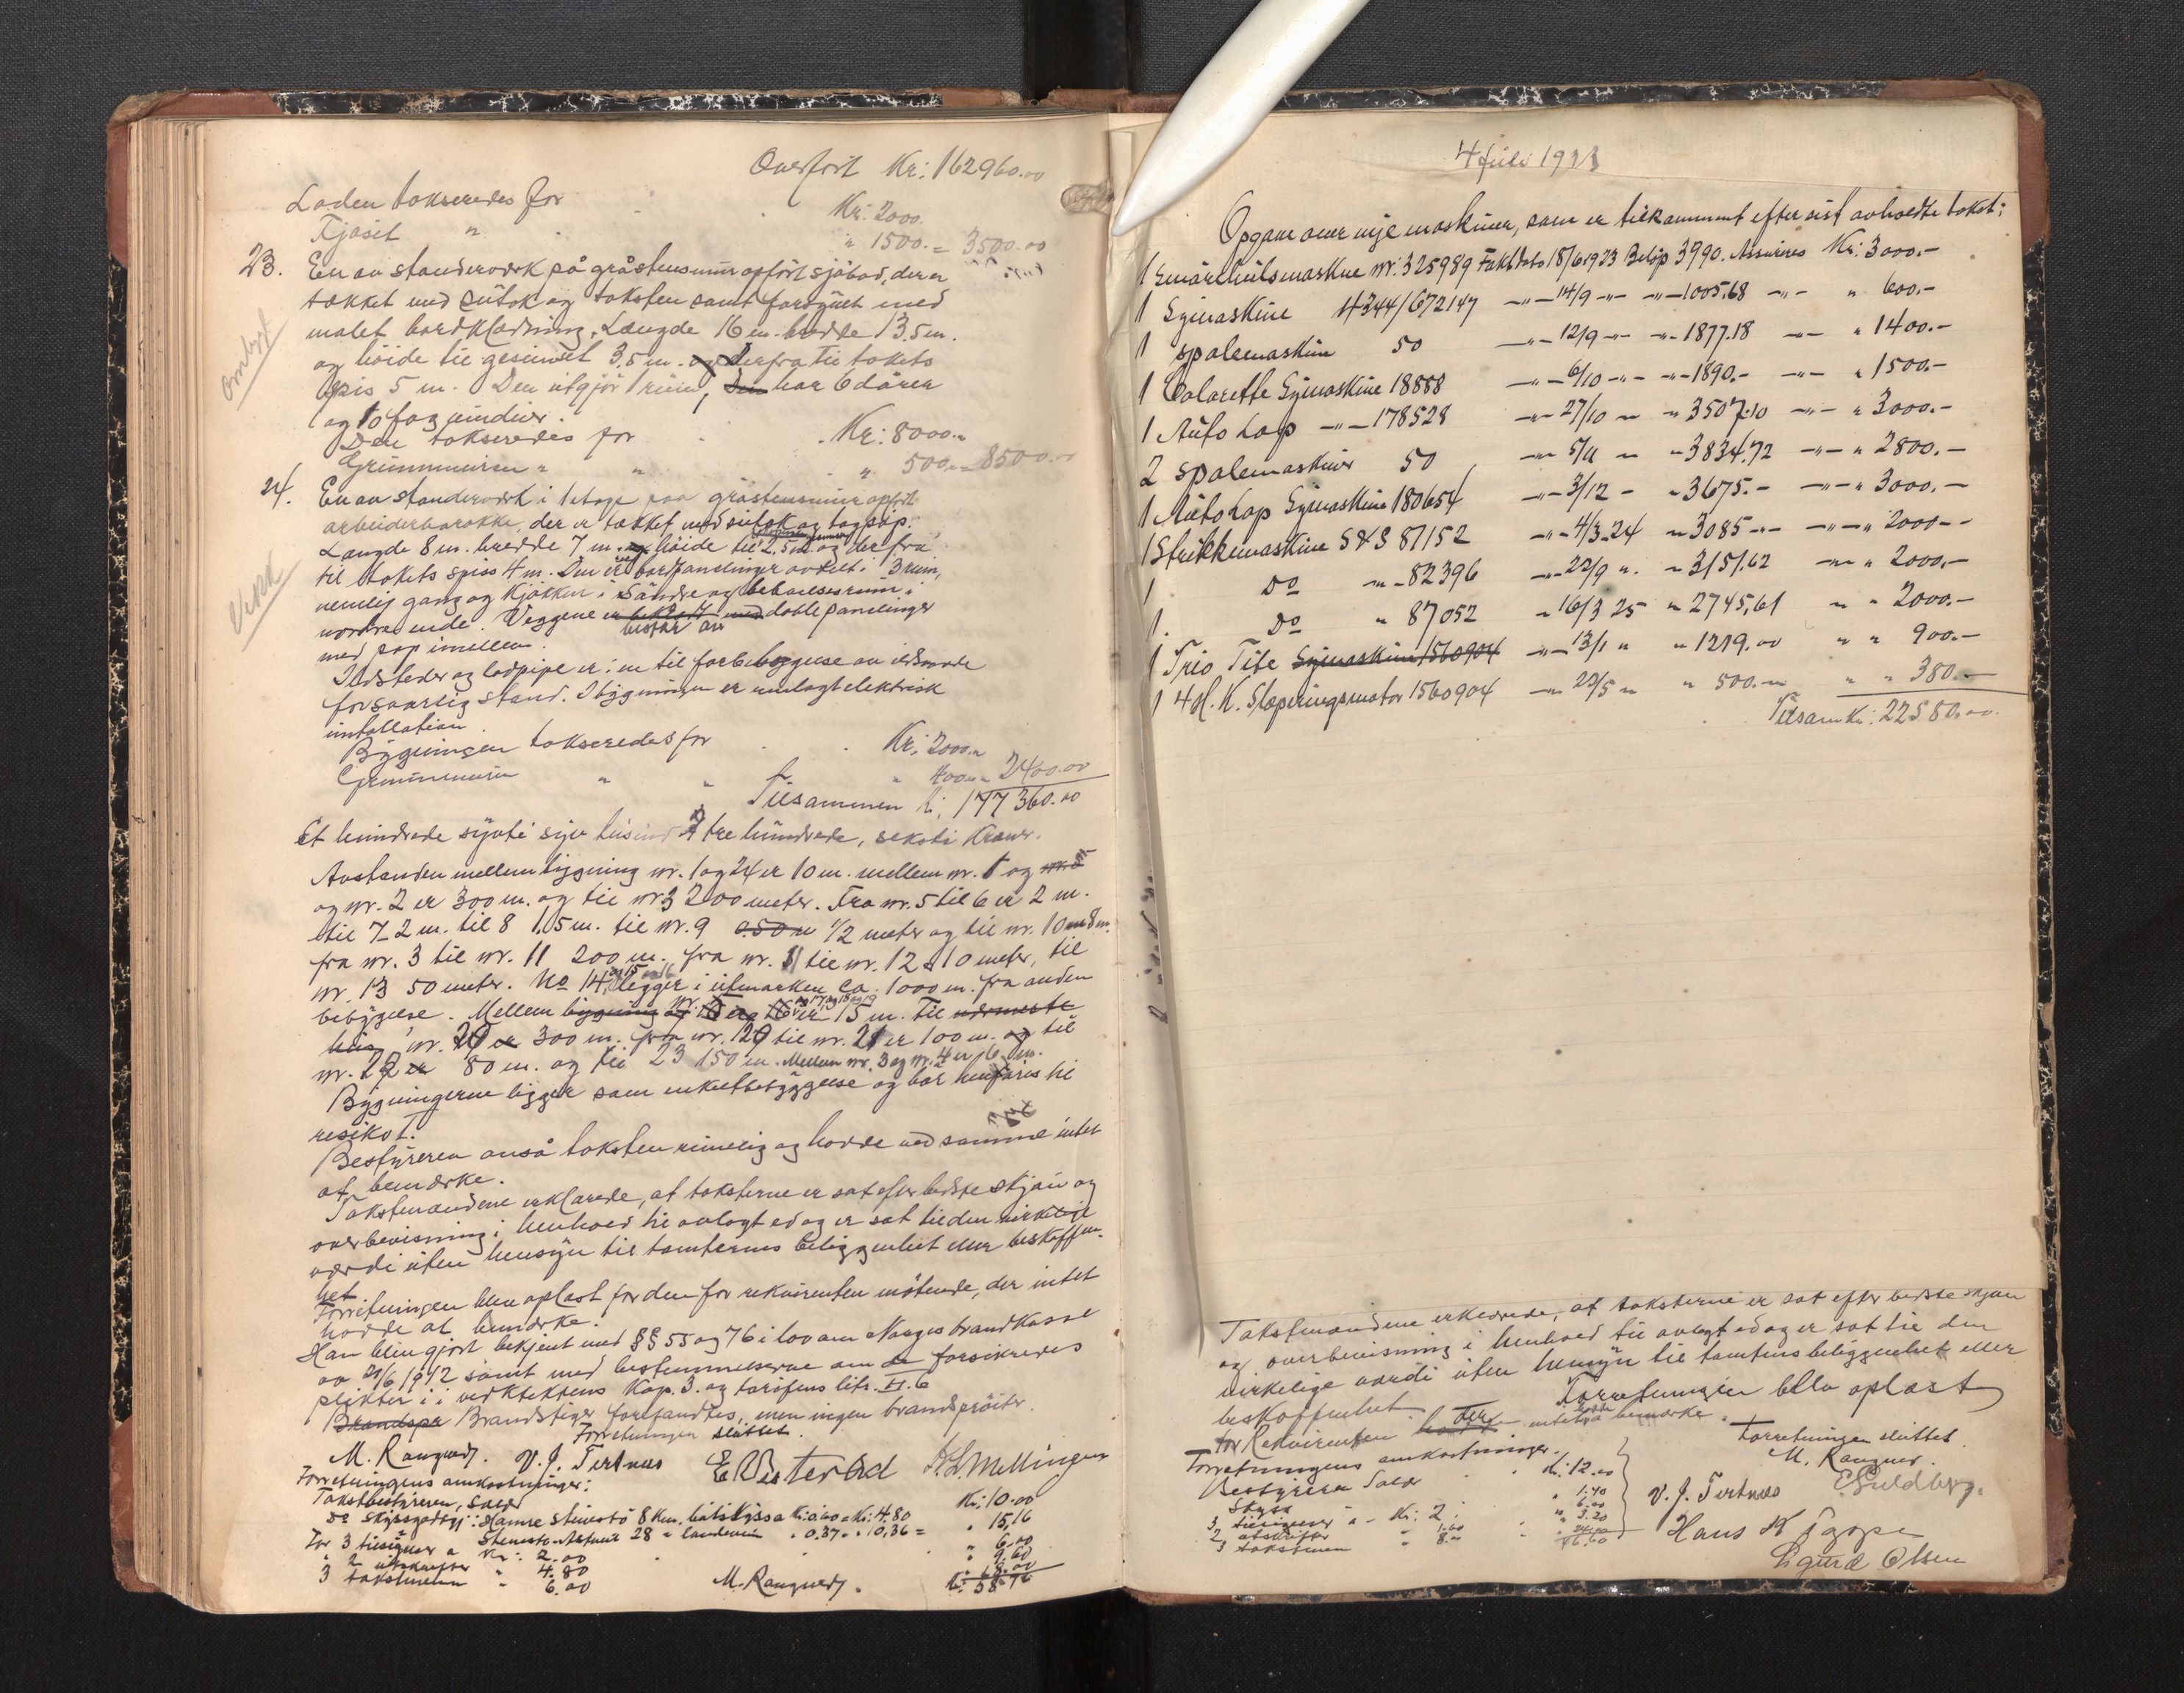 Overfört Kr: 162960.00
Laden takseredes for Kr: 2000.
Fjöset " " 1500.- = 3500.00
23. En av standerverk på gråstensmur opfört sjöbod, der er
tækket med sutak og taksten samt forsynet med
malet bordklædning. Længde 16 m. bredde 13,5 m.
og höide til gesimset 3,5 m. og derfra til takets
spis 5 m. Den utgjör 1 rum, har 6 dörer
og 10 fag vinduer.
Ombygt
Den takseredes for Kr: 8000.-
Grunnmuren " " " 500.- = 8500.00
24. En av standerverk i 1 etage paa gråstensmur opfört
arbeiderbarakke, der er tækket med sutak og tagpap.
Længde 8 m. bredde 7 m. höide til 2,5 m. og derfra
til takets spiss 4 m. Den er ved bordpanelinger avdelt i 3 rum,
nemlig gang og kjökken i söndre og beboelsesrum i
nordre ende. Veggene er beklædt med doble panelinger
består av
med pap imellem.
Ildsteder og lodpipe er i en til forebyggelse av ildsvaade
forsvarlig stand. I bygningen er innlagt elektrisk
installation.
Bygningen takseredes for Kr: 2000.-
Grunnmuren " " " 400.- = 2400.00
Tilsammen kr: 177360.00
Et hundrede sytti syv tusind tre hundrede, seksti Kroner.
Avstanden mellem bygning nr. 1 og 24 er 10 m. mellem nr. 1 og nr. 5
og nr. 2 er 300 m. og til nr 3 200 meter. Fra nr. 5 til 6 er 2 m.
til 7 - 2 m. til 8 1,5 m. til nr. 9 0.50 m 1/2 meter og til nr. 10 8 m.
fra nr. 3 til nr. 11 200 m. fra nr. 11 til nr. 12 10 meter, til
nr. 13 50 meter. No 14, 15 og 16 ligger i utmarken ca. 1000 m. fra anden
bebyggelse. Mellem bygning nr. og 17 og 18 og 19 er 15 m. Til nærmeste
hus, nr. 20 er 300 m. fra nr. 20 til nr. 21 er 100 m. og til
nr. 22 er 80 m. og til 23 150 m. Mellem nr. 3 og nr. 4 er 6 m.
Bygningerne ligger som enkeltbebyggelse og bör henföris til
resiko I.
Bestyreren anså taksten rimelig og hadde ved samme intet
at bemærke.
Takstmændene erklærede, at taksterne er sat efter bedste skjön og
overbevisning i henhold til avlagt ed og er sat til den virkelige
værdi uten hensyn til tomternes beliggenhet eller beskaffen-
het
Forretningen blev oplæst for den for rekvirenten mötende, der intet
hadde at bemærke.
Han blev gjort bekjent med §§ 55 og 76 i lov om Norges brandkasse
av 21/6 1912 samt med bestemmelserne om de forsikredes
plikter i i vedtektens Kap. 3. og tarifens litr. II. 6
Brandspr Brandstiger forefandtes, men ingen brandspröiter.
Forretningen sluttet.
M. Rangnerj. V. J. Tertnæs E Westerød K. L. Mellingen
Forretningens omkostninger:
Takstbestyreren, salær Kr: 10.00
Do skyssgodtgj: Hamre Steinstö 8 Km. båtskyss a Kr: 0,60 = Kr: 4.80
Steinstö-Astveit 28 " landevei " 0.37 = " 10,36 = " 15,16
For 3 tilsigner a Kr: 2.00 " 6.00
" 2 utskrifter " 4.80 " 9.60
3 takstmenn " 6.00 " 18.00
M. Rangnerj. Kr: 58.76
4 juli 1923
Opgave over nye maskiner, som er tilkommet efter sist avholdte takst:
1 Smårehulsmaskine nr. 325989 Fakt. dato 18/6 1923 Belöp 3990. Assureres Kr: 3000.-
1 Symaskine H344/672147 -"- 14/9 -"- -"- 1005.68 -"- " 600.-
1 spolemaskin 50 -"- 12/9 -"- -"- 1877.18 -"- " 1400.-
1 Colarette Symaskine 18888 -"- 6/10 -"- -"- 1890.- -"- " 1500.-
1 Auto Lap -"- 178528 -"- 27/10 -"- " 3507.10 -"- " 3000.-
2 spolemaskiner 50 -"- 5/11 -"- " 3834.72 -"- " 2800.-
1 Auto Lap Symaskine 180654 -"- 3/12 - " 3675.- -"- " 3000.-
1 Strikkemaskine S&S 87152 -"- 4/3.24 " 3085 -"- -"- " 2000.-
1 Do -"- 82396 -"- 22/9 ". " 3151.62 -"- " 2000.-
1. Do " 87052 " 16/3 25 " 2745,61 " " 2000.-
1 Trio Tite Symaskine 1560904 -"- 13/1 " " 1219.00 " " 900.-
1 4 H. K. Sleperingsmotor 1560904 -"- 20/5 " " 500.- " " 380.-
Tilsam Kr: 22580.00.
Takstmændene erklærede, at taksterne er sat efter bedste skjön
og overbevisning i henhold til avlagt ed og er sat til den
virkelige værdi uten hensyn til tomtens beliggenhet eller
beskaffenhet. Forretningen blev oplæst
for Rekvirenten der hadde intet å bemærke.
Forretningen sluttet.
Forretningens omkostninger.
Bestyrerens Salær Kr: 12.00
Skyss " 1.40
3 tilsigner a - Kr: 2. " 6.00
2 utskrifter " 1.60 " 3.20
3 takstmen " 8.00 " 24.00
46.60
M. Rangner.
V. J. Tertnæs E Guldberg.
Hans K Toppe
Sigurd Olsen